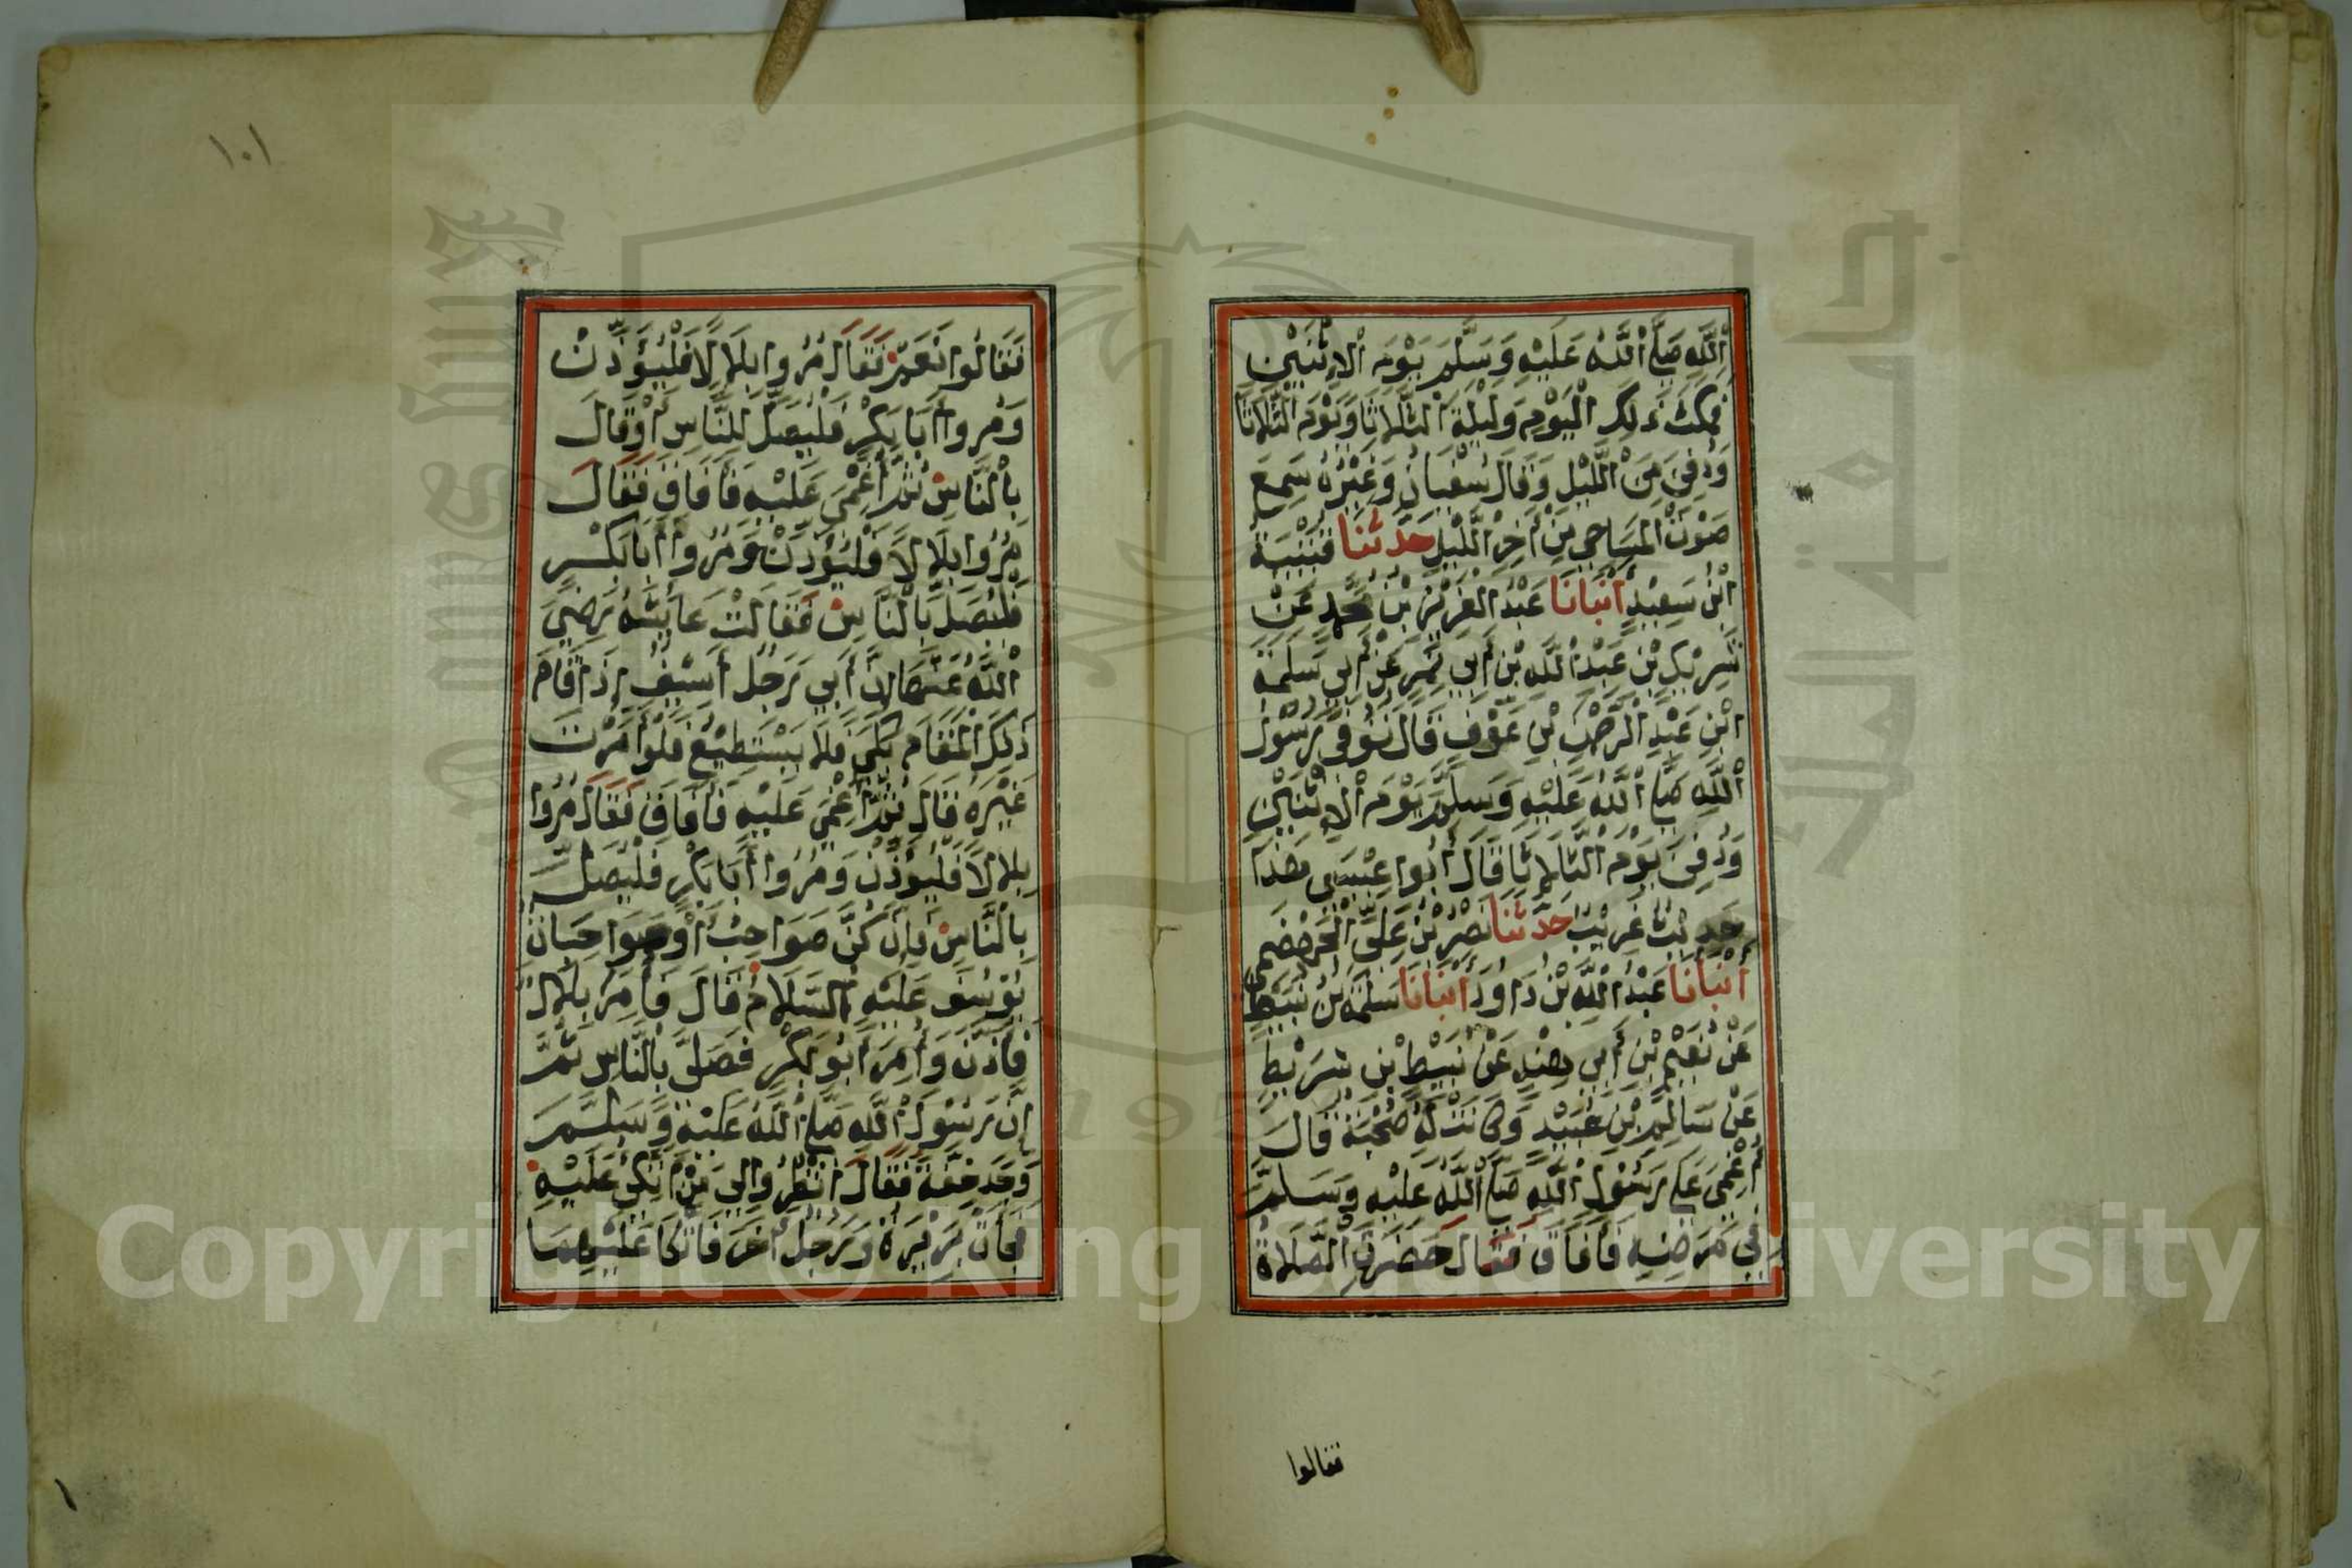 اللَّهِ صَلَّى اللَّهُ عَلَيْهِ وَسَلَّمَ يَوْمَ الاِثْنَيْنِ
فَمَكَثَ ذَلِكَ الْيَوْمَ وَلَيْلَةَ الثَّلَاثَا وَيَوْمَ الثَّلَاثَا
وَدُفِنَ مِنَ اللَّيْلِ وَقَالَ سُفْيَانُ وَغَيْرُهُ سَمِعَ
صَوْتَ الْمَسَاحِي مِنْ أَخِرِ اللَّيْلِ حَدَّثَنَا قُتَيْبَةُ
ابْنُ سَعِيْدٍ أَنْبَانَا عَبْدُ الْعَزِيْزِ بْنُ مُحَمَّدٍ عَنْ
شَرِيْكِ بْنِ عَبْدِ اللَّهِ بْنِ أَبِي نَمِرٍ عَنْ أَبِي سَلَمَةَ
ابْنِ عَبْدِ الرَّحْمَنِ بْنِ عَوْفٍ قَالَ تُوُفِّيَ رَسُوْلُ
اللَّهِ صَلَّى اللَّهُ عَلَيْهِ وَسَلَّمَ يَوْمَ الاِثْنَيْنِ
وَدُفِنَ يَوْمَ الثَّلَاثَا قَالَ أَبُوا عِيْسَى هَذَا
حَدِيْثٌ غَرِيْبٌ حَدَّثَنَا نَصْرُ بْنُ عَلِيِّ الْجَهْضَمِيُّ
أَنْبَأَنَا عَبْدُ اللَّهِ بْنُ دَاوُدَ أَنْبَأَنَا سَلَمَةُ بْنُ نُبَيْطٍ
عَنْ نُعَيْمِ بْنِ أَبِي هِنْدٍ عَنْ نُبَيْطِ بْنِ شَرِيْطٍ
عَنْ سَالِمِ بْنِ عُبَيْدٍ وَكَانَتْ لَهُ صُحْبَةٌ قَالَ
أُغْمِيَ عَلَى رَسُوْلِ اللَّهِ صَلَّى اللَّهُ عَلَيْهِ وَسَلَّمَ
فِي مَرَضِهِ فَأَفَاقَ فَقَالَ حَضَرَتِ الصَّلَاةُ
فقالوا
١٠١
فَقَالُوا نَعَمْ فَقَالَ مُرُوا بِلَالًا فَلْيُؤَذِّنْ
وَمُرُوا أَبَا بَكْرٍ فَلْيُصَلِّ لِلنَّاسِ أَوْ قَالَ
بِالنَّاسِ ثُمَّ أُغْمِيَ عَلَيْهِ فَأَفَاقَ فَقَالَ
مُرُوا بِلَالًا فَلْيُؤَذِّنْ وَمُرُوا أَبَا بَكْرٍ
فَلْيُصَلِّ بِالنَّاسِ فَقَالَتْ عَايِشَةُ رَضِيَ
اللَّهُ عَنْهَا إِنَّ أَبِي رَجُلٌ أَسِيْفٌ إِذَا قَامَ
ذَلِكَ الْمَقَامَ بَكَى فَلَا يَسْتَطِيْعُ فَلَوْ أَمَرْتَ
غَيْرَهُ قَالَ ثُمَّ أُغْمِيَ عَلَيْهِ فَأَفَاقَ فَقَالَ مُرُوا
بِلَالًا فَلْيُؤَذِّنْ وَمُرُوا أَبَا بَكْرٍ فَلْيُصَلِّ
بِالنَّاسِ فَإِنَّكُنَّ صَوَاحِبُ أَوْ صَوَاحِبَاتُ
يُوْسُفَ عَلَيْهِ السَّلَامُ قَالَ فَأُمِرَ بِلَالٌ
فَأَذَّنَ وَأُمِرَ أَبُو بَكْرٍ فَصَلَّى بِالنَّاسِ ثُمَّ
إِنَّ رَسُوْلَ اللَّهِ صَلَّى اللَّهُ عَلَيْهِ وَسَلَّمَ
وَجَدَ خِفَّةً فَقَالَ انْظُرُوا لِي مَنْ أَتَّكِئُ عَلَيْهِ
فَجَأَتْ بَرِيْرَةُ وَرَجُلٌ أَخَرُ فَاتَّكَأَ عَلَيْهِمَا
Copyright © King Saud University